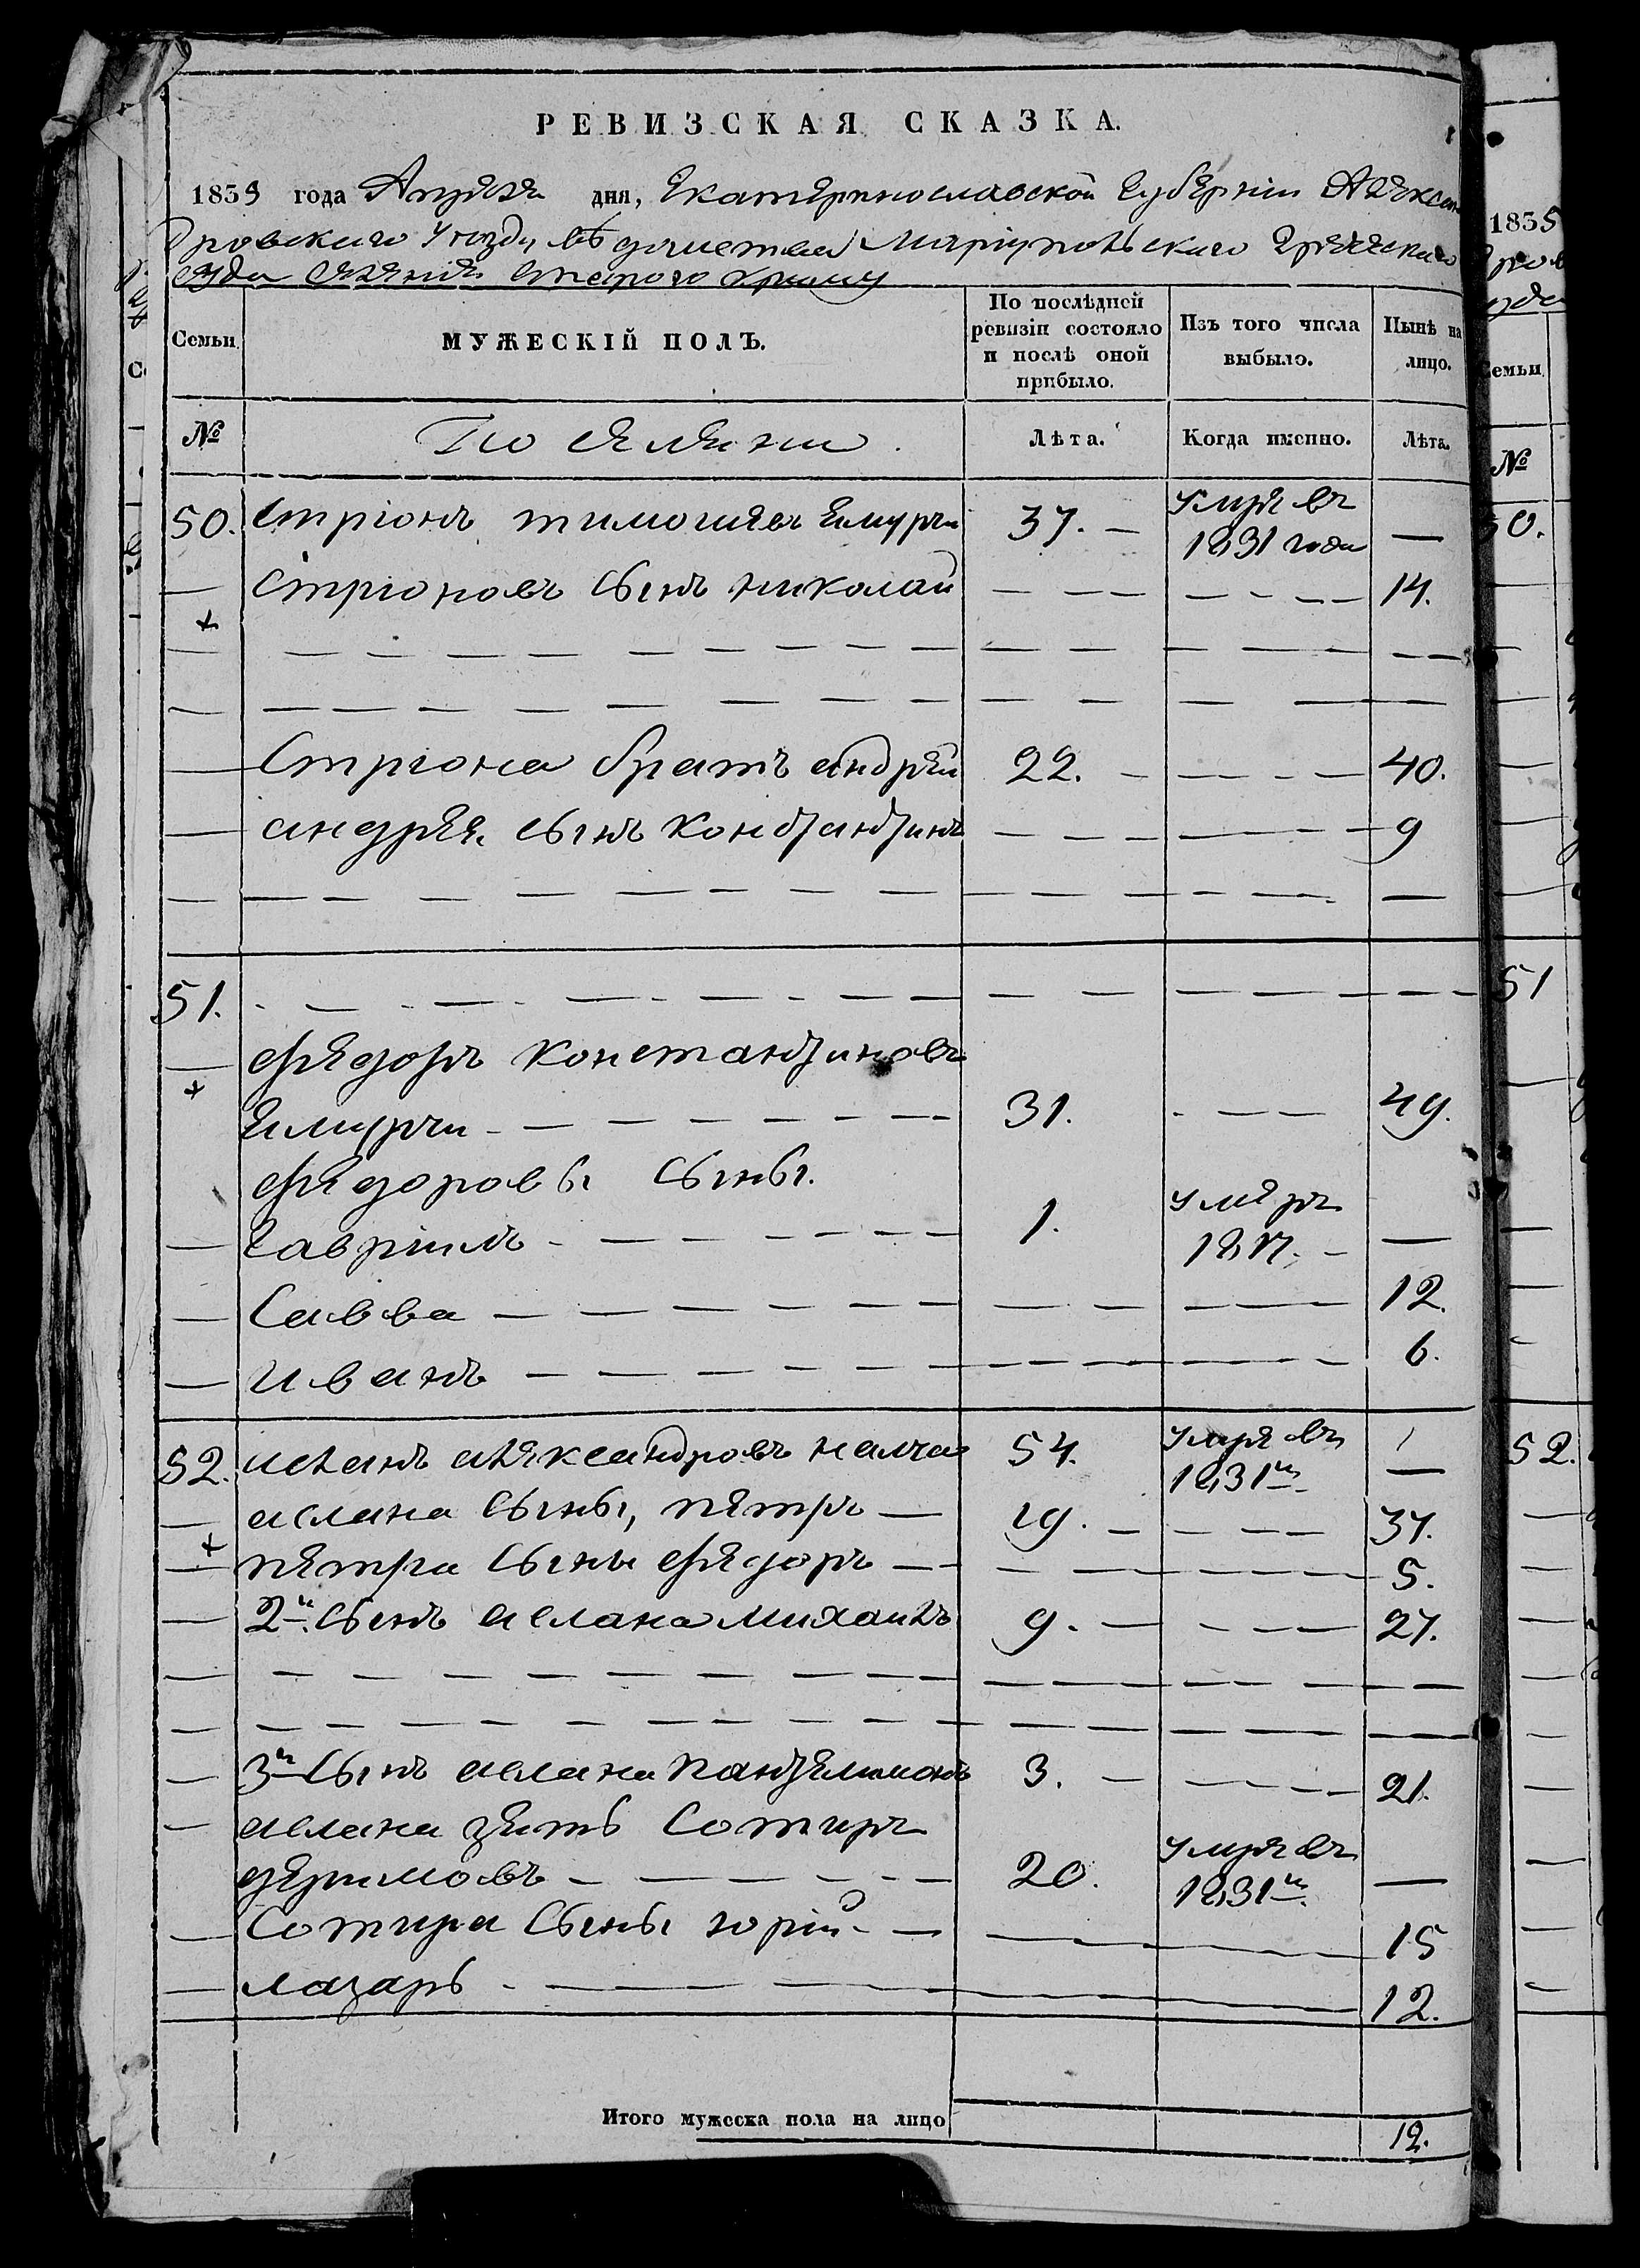 РЕВИЗСКАЯ СКАЗКА.
1835 года Апреля дня, Екатеринославской Губернии Алексан
дровского Уезду, ведомства Мариупольского Греческого
суда селения Старого Крыму
Семьи
МУЖЕСКІЙ ПОЛЪ.
По послѣдней
ревизіи состояло
и послѣ оной
прибыло.
Изъ того числа
выбыло.
Нынѣ на
лицо.
№
Поселяни.
Лѣта.
Когда именно.
Лѣта.
50. Стріонъ тимошевъ Емурчи 37. — умре въ
1831 года —
— Стріоновъ сынъ николай — — — — — — — 14.
— Стріона братъ андрей 22. — — — — 40.
— андрея сынъ константинъ — — — — — — 9
51.
— федоръ константиновъ
Емурчи — 31. — — — 49.
федоровы сыны.
— Гавріилъ — 1. умеръ
1817. — —
— Савва — — — — 12.
— иванъ — — — — 6.
52. аслан александровъ налча 54. умре въ
1831м —
— аслана сыны, петръ — 19. — — — — 37.
— петра сынъ федоръ — — — — — — 5.
— 2й сынъ аслана михаилъ 9. — — — — 27.
— 3й сынъ аслана пантелимонъ 3. — — — — 21.
— аслана зять Сотиръ
деримовъ — 20. умре въ
1831м —
— Сотира сыны юрій — — — 15
— лазарь — — — 12.
Итого мужеска пола на лицо 12.
1835
Семьи
№
50.
51
52.